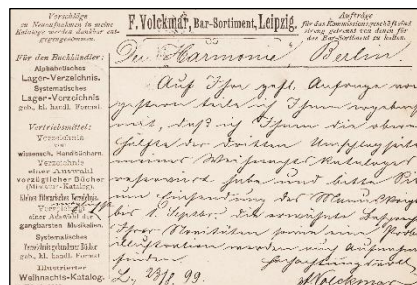 Vorschläge
zu Neuaufnahmen in meine
Kataloge werden dankbar ent-
gegengenommen.
F. Volckmar, Bar-Sortiment, Leipzig.
Aufträge
für das Kommissionsgeschäft sind
streng getrennt von denen für
das Bar-Sortiment zu halten.
Für den Buchhändler:
Alphabetisches
Lager-Verzeichnis.
Systematisches
Lager-Verzeichnis
geb., kl. handl. Format.
Vertriebsmittel:
Verzeichnis
von
wissensch. Handbüchern.
Verzeichnis
einer Auswahl
vorzüglicher Bücher
(Miniatur-Katalog).
Kleines literarisches Verzeichnis.
Verzeichnis
einer Auswahl
gangbarsten Musikalien.
Systematisches
Verzeichnis gebundener Bücher
geb., kl. handl. Format
Illustrierter
Weihnachts-Katalog.
Die "Harmonie" Berlin.
Auf Ihre gefl. Anfrage von
gestern teile ich Ihnen ergebenst
mit, daß ich Ihnen die obere
Hälfte der dritten Umschlagseite
meines Weihnachtskataloges
reservirt habe und bitte Sie
um Einsendung des Manuskriptes
bis 1. Septbr. die erwähnte
Ihrer Novitäten sowie eine
Illustration werden
finden. Hochachtungsvoll
L., 23/8. 99.
F. Volckmar